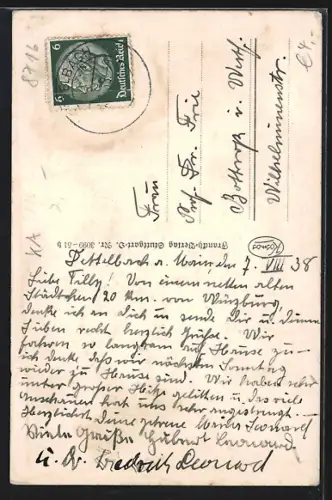 8716
€4,-
KA
6 6
Deutsches Reich
Frau
Prof. Dr. Frie
Bottrop i. Westf.
Wilhelminenstr.
Kosmos
Franckh-Verlag Stuttgart-O. Nr. 3099-51 b
Dettelbach a. Main den 7. VIII 38
Liebe Tilly! Von einem netten alten
Städtchen, 20 Km. von Würzburg,
denke ich an Dich u. sende Dir u. Deinen
Lieben recht herzlich Grüße. Wir
fahren so langsam auf Hause zu
ich denke daß wir nächsten Sonntag
wieder zu Hause sind. Wir haben sehr
unter großer Hitze gelitten u. das viele
Anschauen hat uns sehr angestrengt. –
Herzlichst Deine getreue Leonard
Viele Grüße Hubert Leonard
u. Dr. Friedrich Leonard